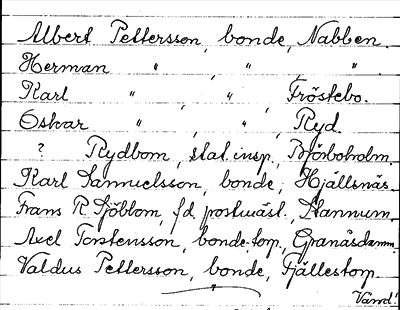 Albert Pettersson, bonde, Nabben.
Herman " , " , " .
Karl " , " , Fröstebo.
Oskar " , " , Ryd.
? Rydbom, stat.insp., Björboholm.
Karl Samuelsson, bonde, Hjällsnäs.
Frans R. Sjöblom, f.d. postmäst., Stannum.
Axel Torstensson, bonde-torp., Granäsdamm.
Valdus Pettersson, bonde, Fjällestorp.
"
Vänd!